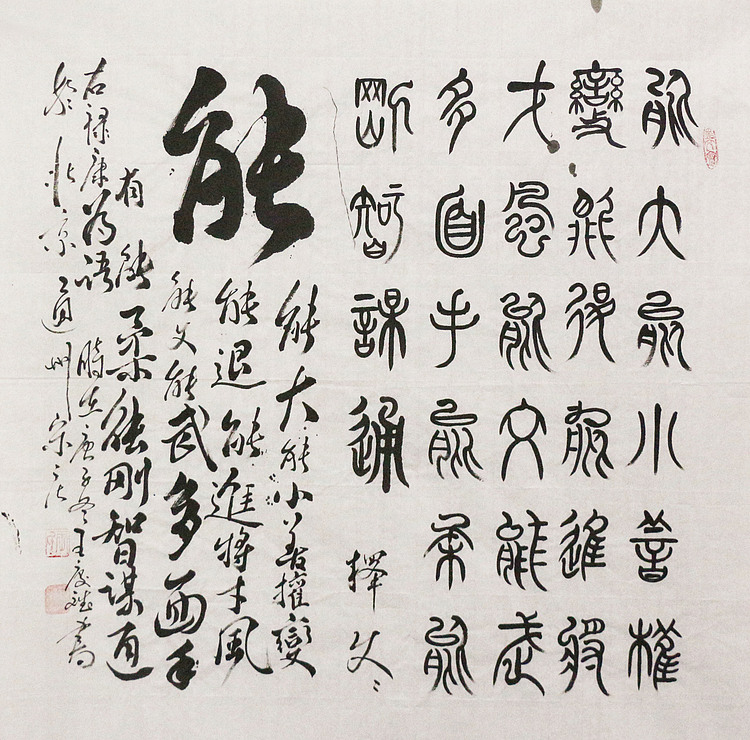 能大能小善權
變能退能進將
才風能文能武
多面手能柔能
剛智謀通
釋文
能
能大能小善權變
能退能進將才風
能文能武多面手
有能柔能剛智謀通
右祿康為語 時在庚子冬王慶書
於北京通州宋莊